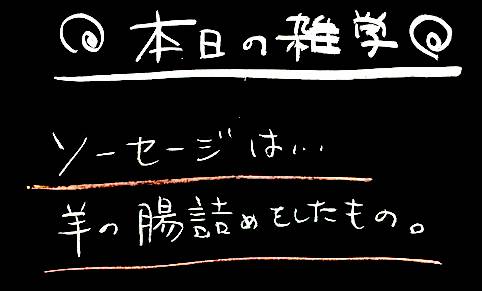 本日の雑学
ソーセージは...
羊の腸詰めをしたもの。